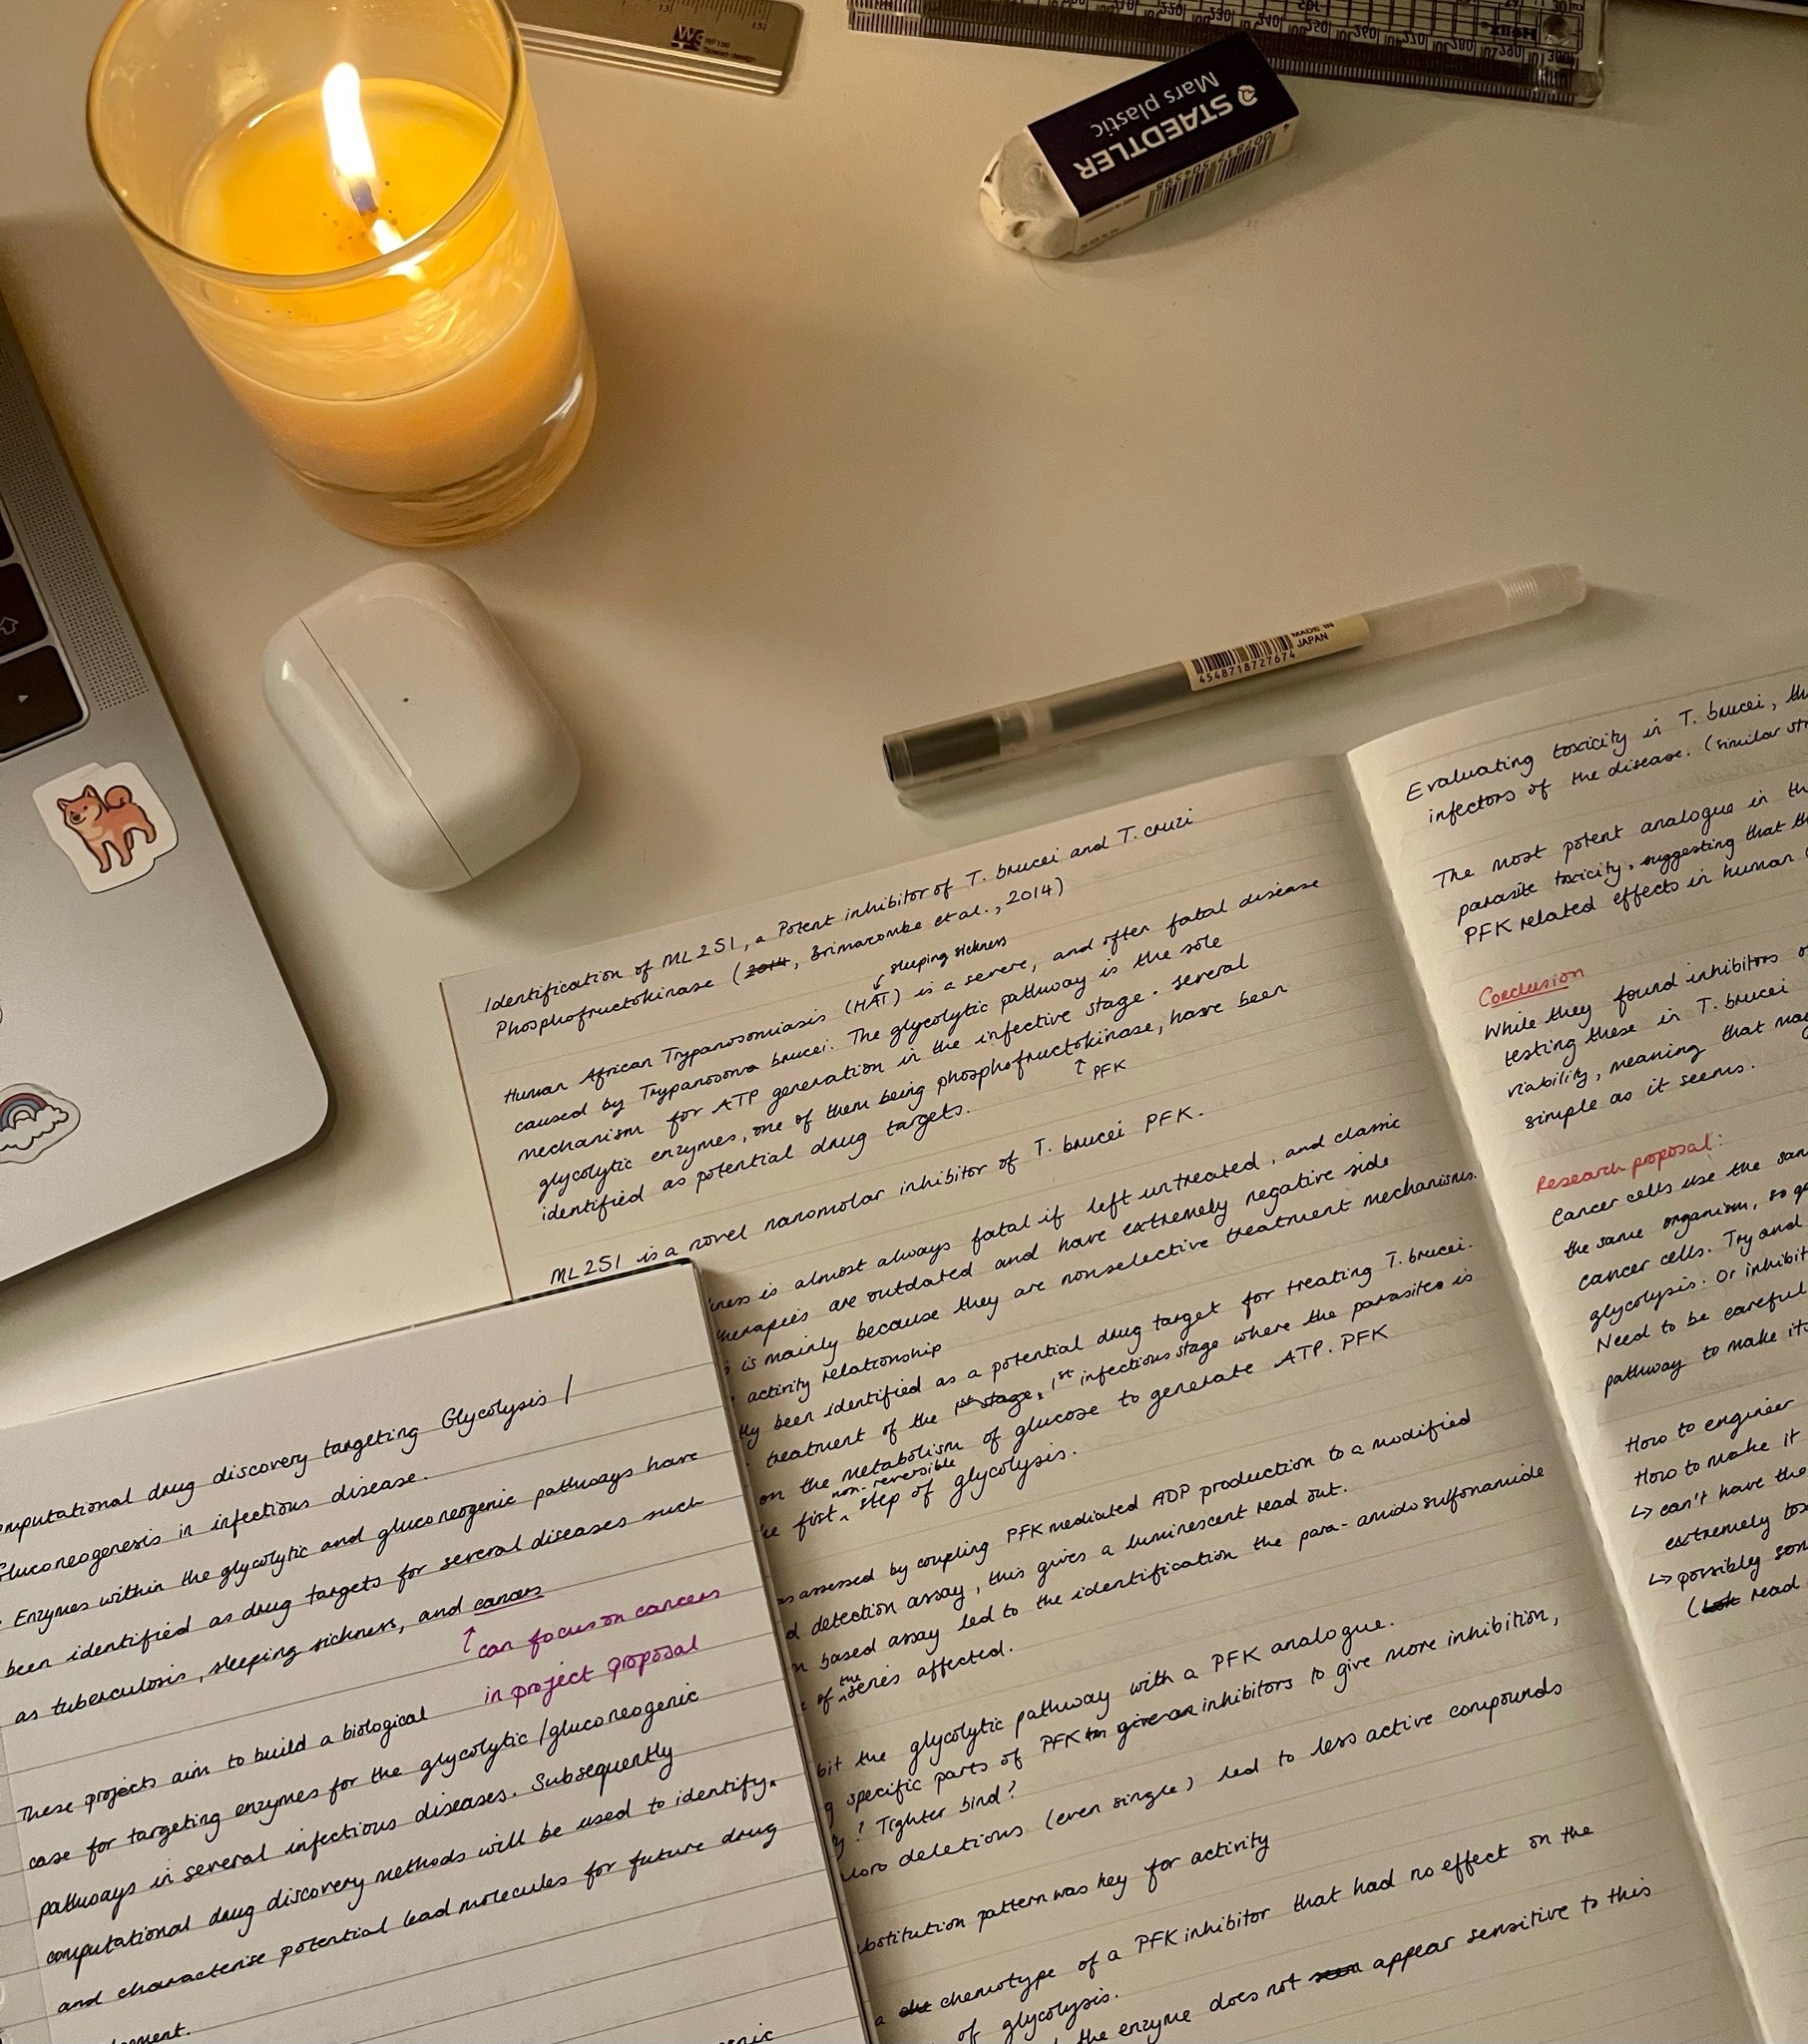 WG
STAEDTLER
Mars plastic
MADE IN
JAPAN
4548718727674
Identification of ML251, a Potent inhibitor of T. brucei and T. cruzi
Phosphofructokinase (2014, Brimacombe et al., 2014)
sleeping sickness
Human African Trypanosomiasis (HAT) is a severe, and often fatal disease
caused by Trypanosoma brucei. The glycolytic pathway is the sole
mechanism for ATP generation in the infective stage. several
glycolytic enzymes, one of them being phosphofructokinase, have been
↑ PFK
identified as potential drug targets.
ML251 is a novel nanomolar inhibitor of T. brucei PFK.
is almost always fatal if left untreated, and classic
therapies are outdated and have extremely negative side
is mainly because they are nonselective treatment mechanisms.
activity relationship
been identified as a potential drug target for treating T. brucei.
treatment of the 1st stage, 1st infectious stage where the parasites is
on the metabolism of glucose to generate ATP. PFK
non-reversible
first step of glycolysis.
assessed by coupling PFK mediated ADP production to a modified
detection assay, this gives a luminescent read out.
based assay led to the identification the para-amidosulfonamide
the
of series affected.
the glycolytic pathway with a PFK analogue.
specific parts of PFK inhibitors to give more inhibition,
? Tighter bind?
deletions (even single) led to less active compounds
pattern was key for activity
a chemotype of a PFK inhibitor that had no effect on the
of glycolysis.
the enzyme does not seem appear sensitive to this
Evaluating toxicity in T. brucei,
infectors of the disease. (similar
The most potent analogue in
parasite toxicity, suggesting that
PFK related effects in human
Conclusion
While they found inhibitors
testing these in T. brucei
viability, meaning that
simple as it seems.
Research proposal:
Cancer cells use the
the same organism, so
cancer cells. Try and
glycolysis. Or inhibit
Need to be careful
pathway to make it
How to engineer
How to make it
↳ can't have the
extremely
↳ possibly
(Look read
drug discovery targeting Glycolysis /
Gluconeogenesis in infectious disease.
Enzymes within the glycolytic and gluconeogenic pathways have
been identified as drug targets for several diseases such
as tuberculosis, sleeping sickness, and cancers
↑ can focus on cancers
in project proposal
These projects aim to build a biological
case for targeting enzymes for the glycolytic/gluconeogenic
pathways in several infectious diseases. Subsequently
computational drug discovery methods will be used to identify
and characterise potential lead molecules for future drug